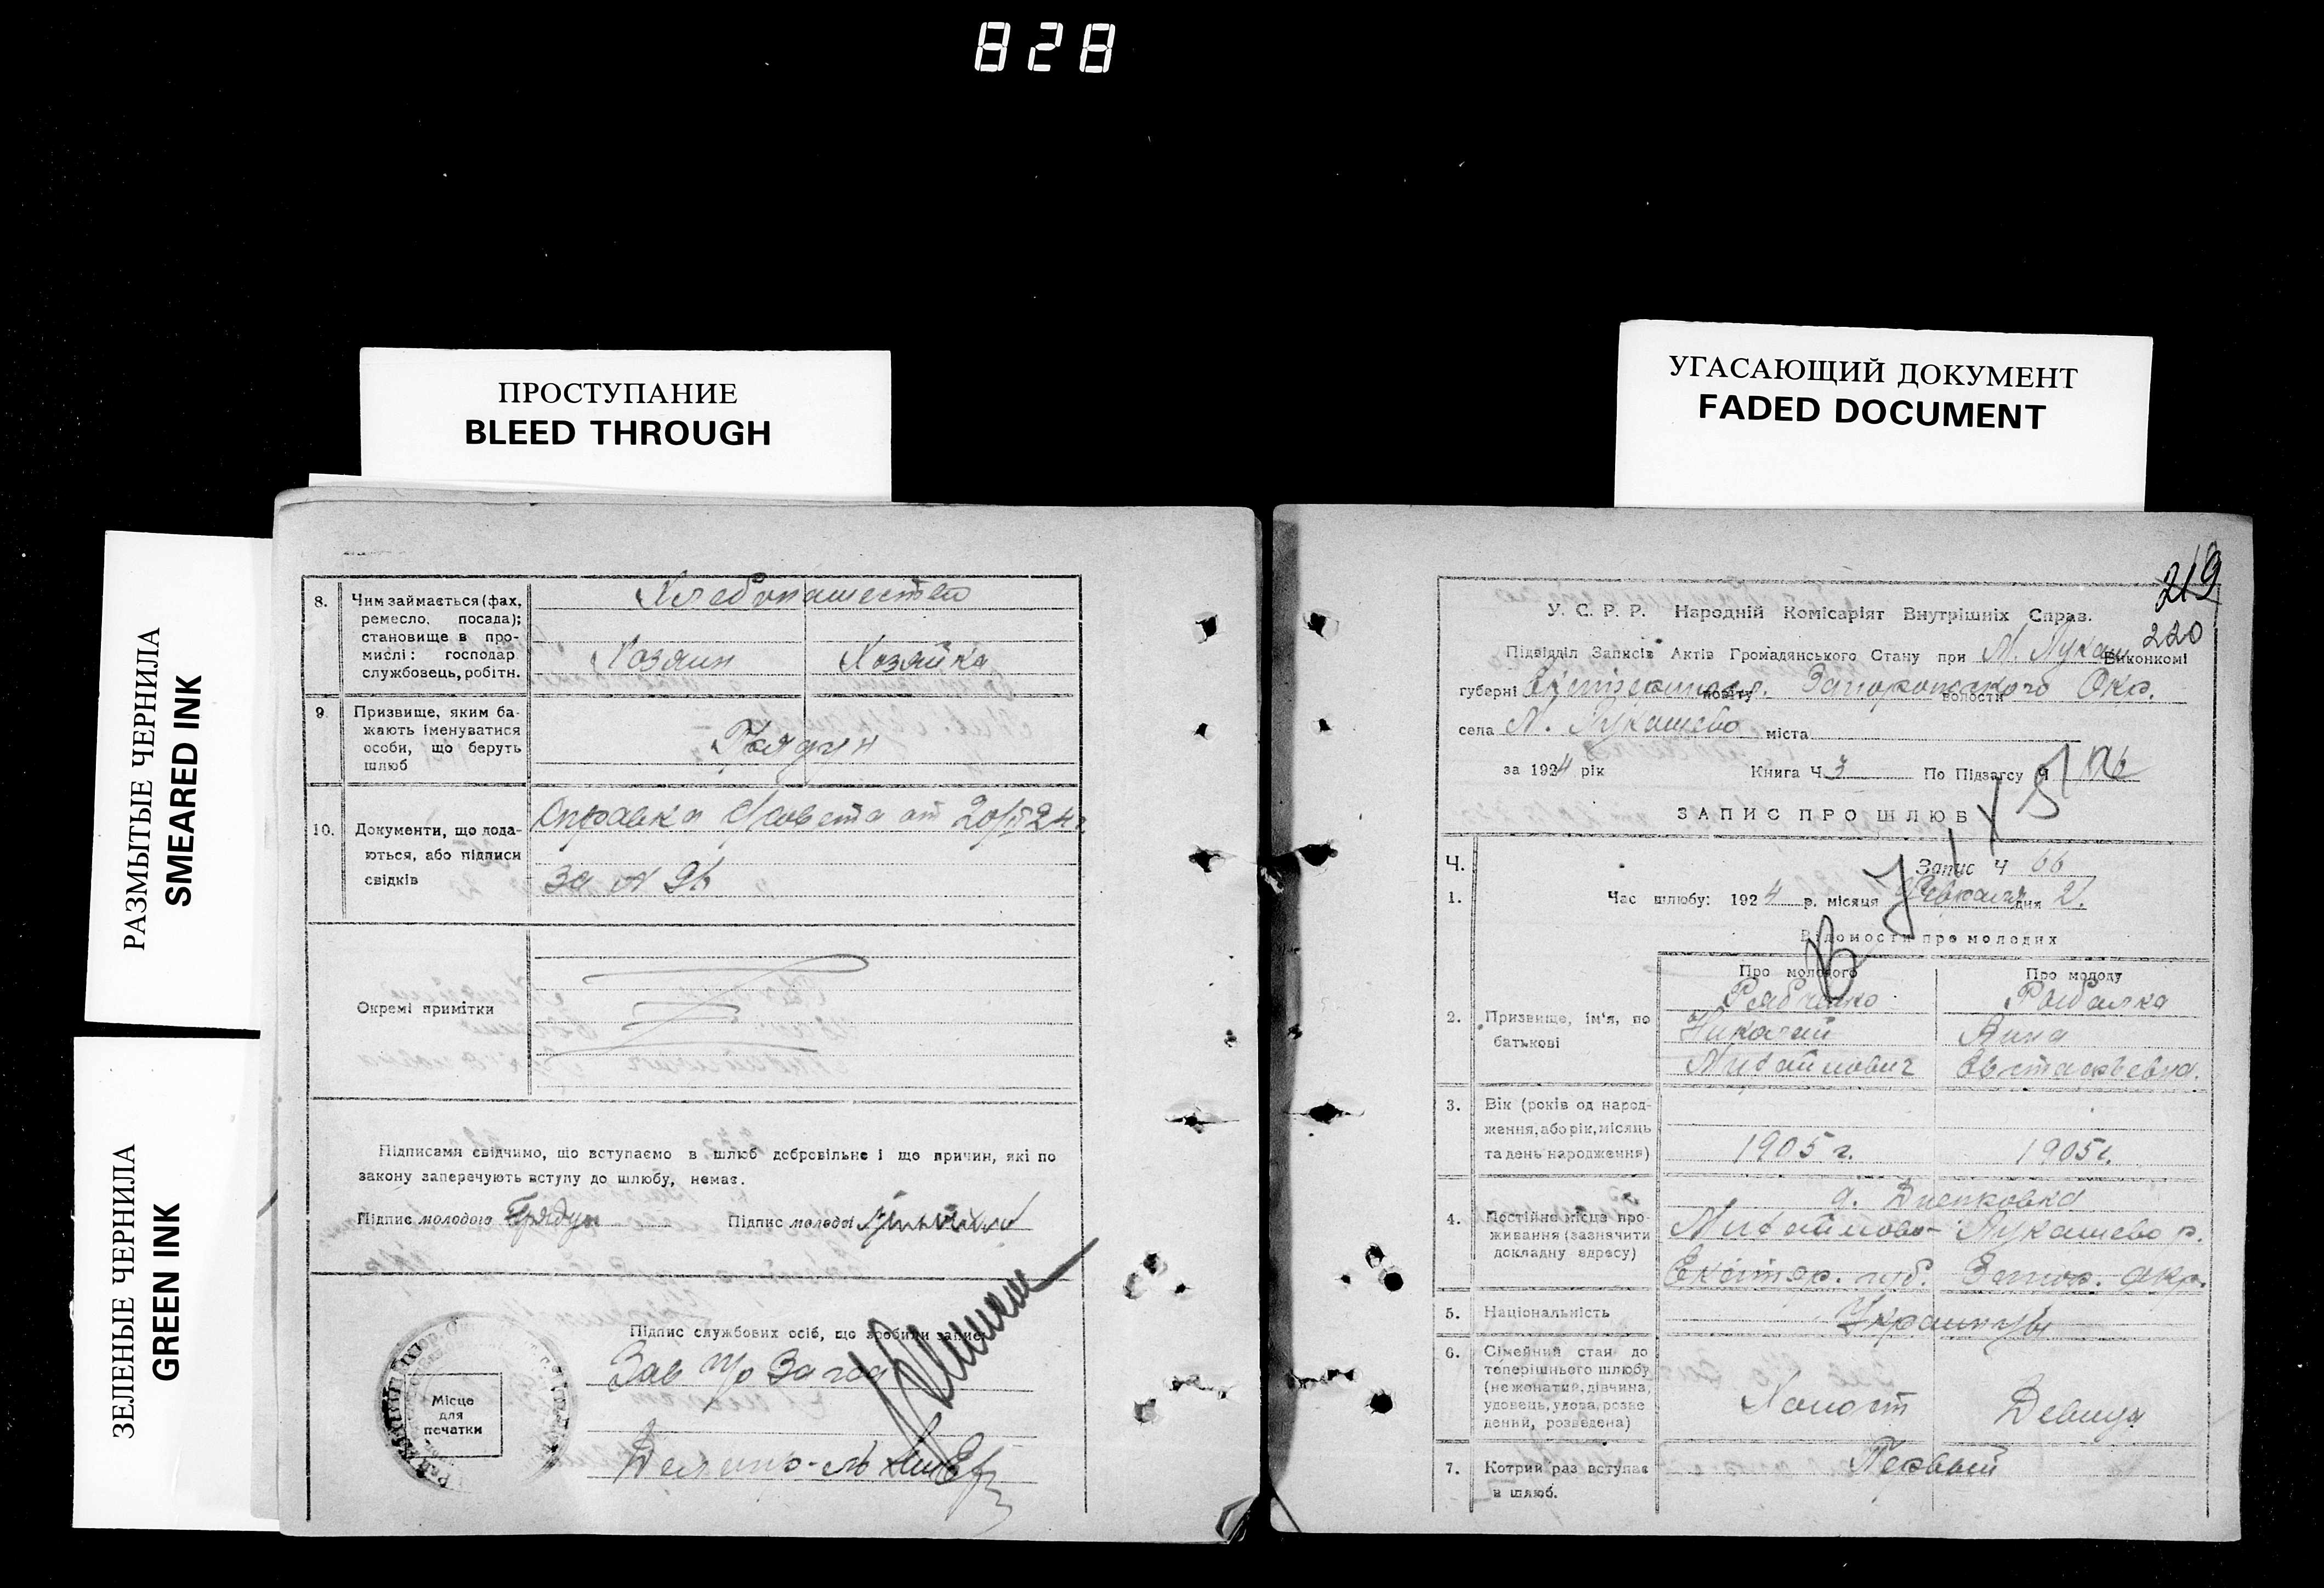 828
ПРОСТУПАНИЕ
BLEED THROUGH
УГАСАЮЩИЙ ДОКУМЕНТ
FADED DOCUMENT
РАЗМЫТЫЕ ЧЕРНИЛА
SMEARED INK
ЗЕЛЕНЫЕ ЧЕРНИЛА
GREEN INK
8. Чим займається (фах,
ремесло, посада);
становище в про-
мислі: господар
службовець, робітн.
Хлебопашество
Хозяин Хозяйка
9 Призвище, яким ба-
жають іменуватися
особи, що беруть
шлюб
10. Документи, що пода-
ються, або підписи
свідків
Справка С/совета от 20/II 24 г.
за № 96
Окремі примітки
Підписами свідчимо, що вступаємо в шлюб добровільне і що причин, які по
закону заперечують вступу до шлюбу, немає.
Підпис молодого Підпис молодої
Підпис службових осіб, що зробили запис:
Зав
Місце
для
печатки
219
220
У. С. Р. Р. Народній Комісаріят Внутрішніх Справ.
Підвідділ Записів Актів Громадянського Стану при М. Лукаш Виконкомі
губерні Екатеринослав. повіту Запорожского волости Окр.
села М. Лукашево міста
за 1924 рік Книга Ч. 3 По Підзагсу Ч
ЗАПИС ПРО ШЛЮБ
Ч. Запис Ч 66
1. Час шлюбу: 1924 р. місяця Февраля дня 21.
Відомости про молодих
Про молодого Про молоду
2. Призвище, ім'я, по
батькові
Рябченко Рыбалка
Николай Анна
Михайлович Евстафьевна.
3. Вік (років од народ-
ження, або рік, місяць
та день народження)
1905 г. 1905 г.
4. Постійне місце про-
живання (зазначити
докладну адресу)
д. Днепровка
Михайлово-Лукашево р.
Екатер. губ. Запор. окр.
5. Національність Украинцы
6. Сімейний стан до
теперішнього шлюбу
(не жонатий, дівчина,
удовець, удова, розве
дений, розведена)
Холост Девица
7. Котрий раз вступає
в шлюб.
Первый